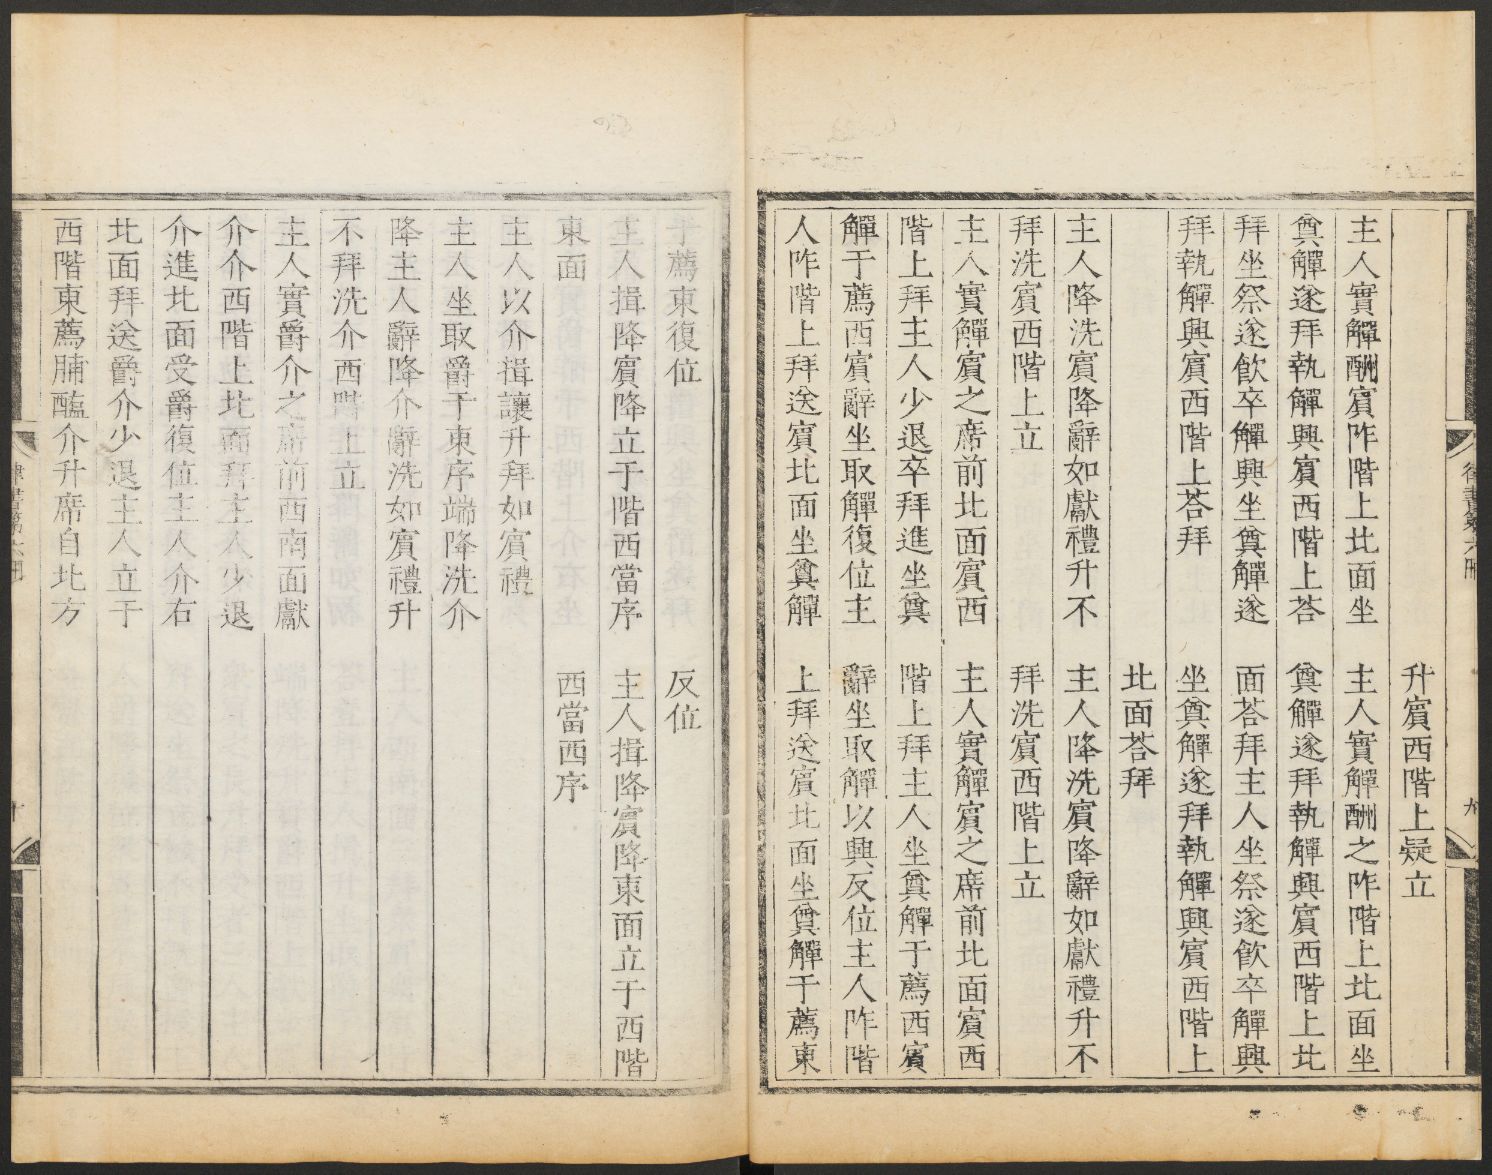 升賓西階上疑立
主人實觶酬賓阼階上北面坐 主人實觶酬之阼階上北面坐
奠觶遂拜執觶興賓西階上荅 奠觶遂拜執觶興賓西階上北
拜坐祭遂飲卒觶興坐奠觶遂 面荅拜主人坐祭遂飲卒觶興
拜執觶興賓西階上荅拜 坐奠觶遂拜執觶興賓西階上
北面荅拜
主人降洗賓降辭如獻禮升不 主人降洗賓降辭如獻禮升不
拜洗賓西階上立 拜洗賓西階上立
主人實觶賓之席前北面賓西 主人實觶賓之席前北面賓西
階上拜主人少退卒拜進坐奠 階上拜主人坐奠觶于薦西賓
觶于薦西賓辭坐取觶復位主 辭坐取觶以興反位主人阼階
人阼階上拜送賓北面坐奠觶 上拜送賓北面坐奠觶于薦東
九
于薦東復位 反位
主人揖降賓降立于階西當序 主人揖降賓降東面立于西階
東面 西當西序
主人以介揖讓升拜如賓禮
主人坐取爵于東序端降洗介
降主人辭降介辭洗如賓禮升
不拜洗介西階上立
主人實爵介之席前西南面獻
介介西階上北面拜主人少退
介進北面受爵復位主人介右
北面拜送爵介少退主人立于
西階東薦脯醢介升席自北方
十